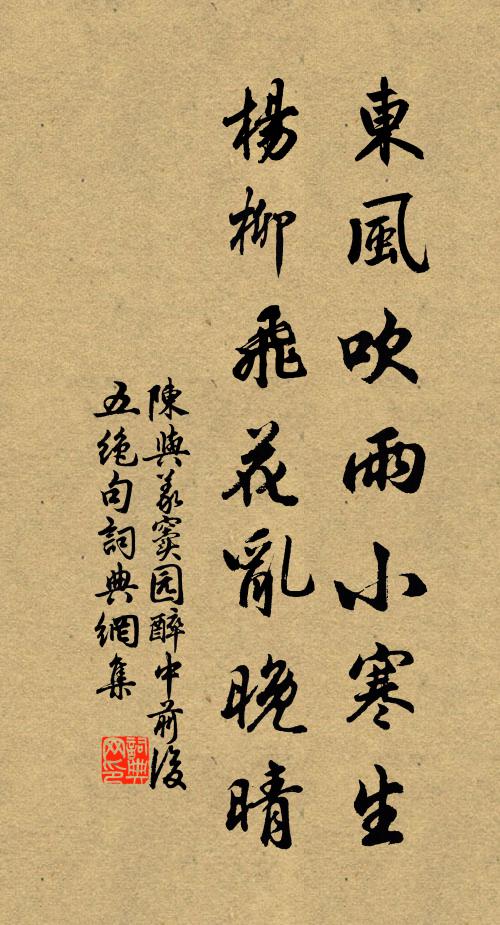 東風吹雨小寒生
楊柳飛花亂晚晴
陳與義竇园醉中前後
五絕句詞典網集
詞典
网印